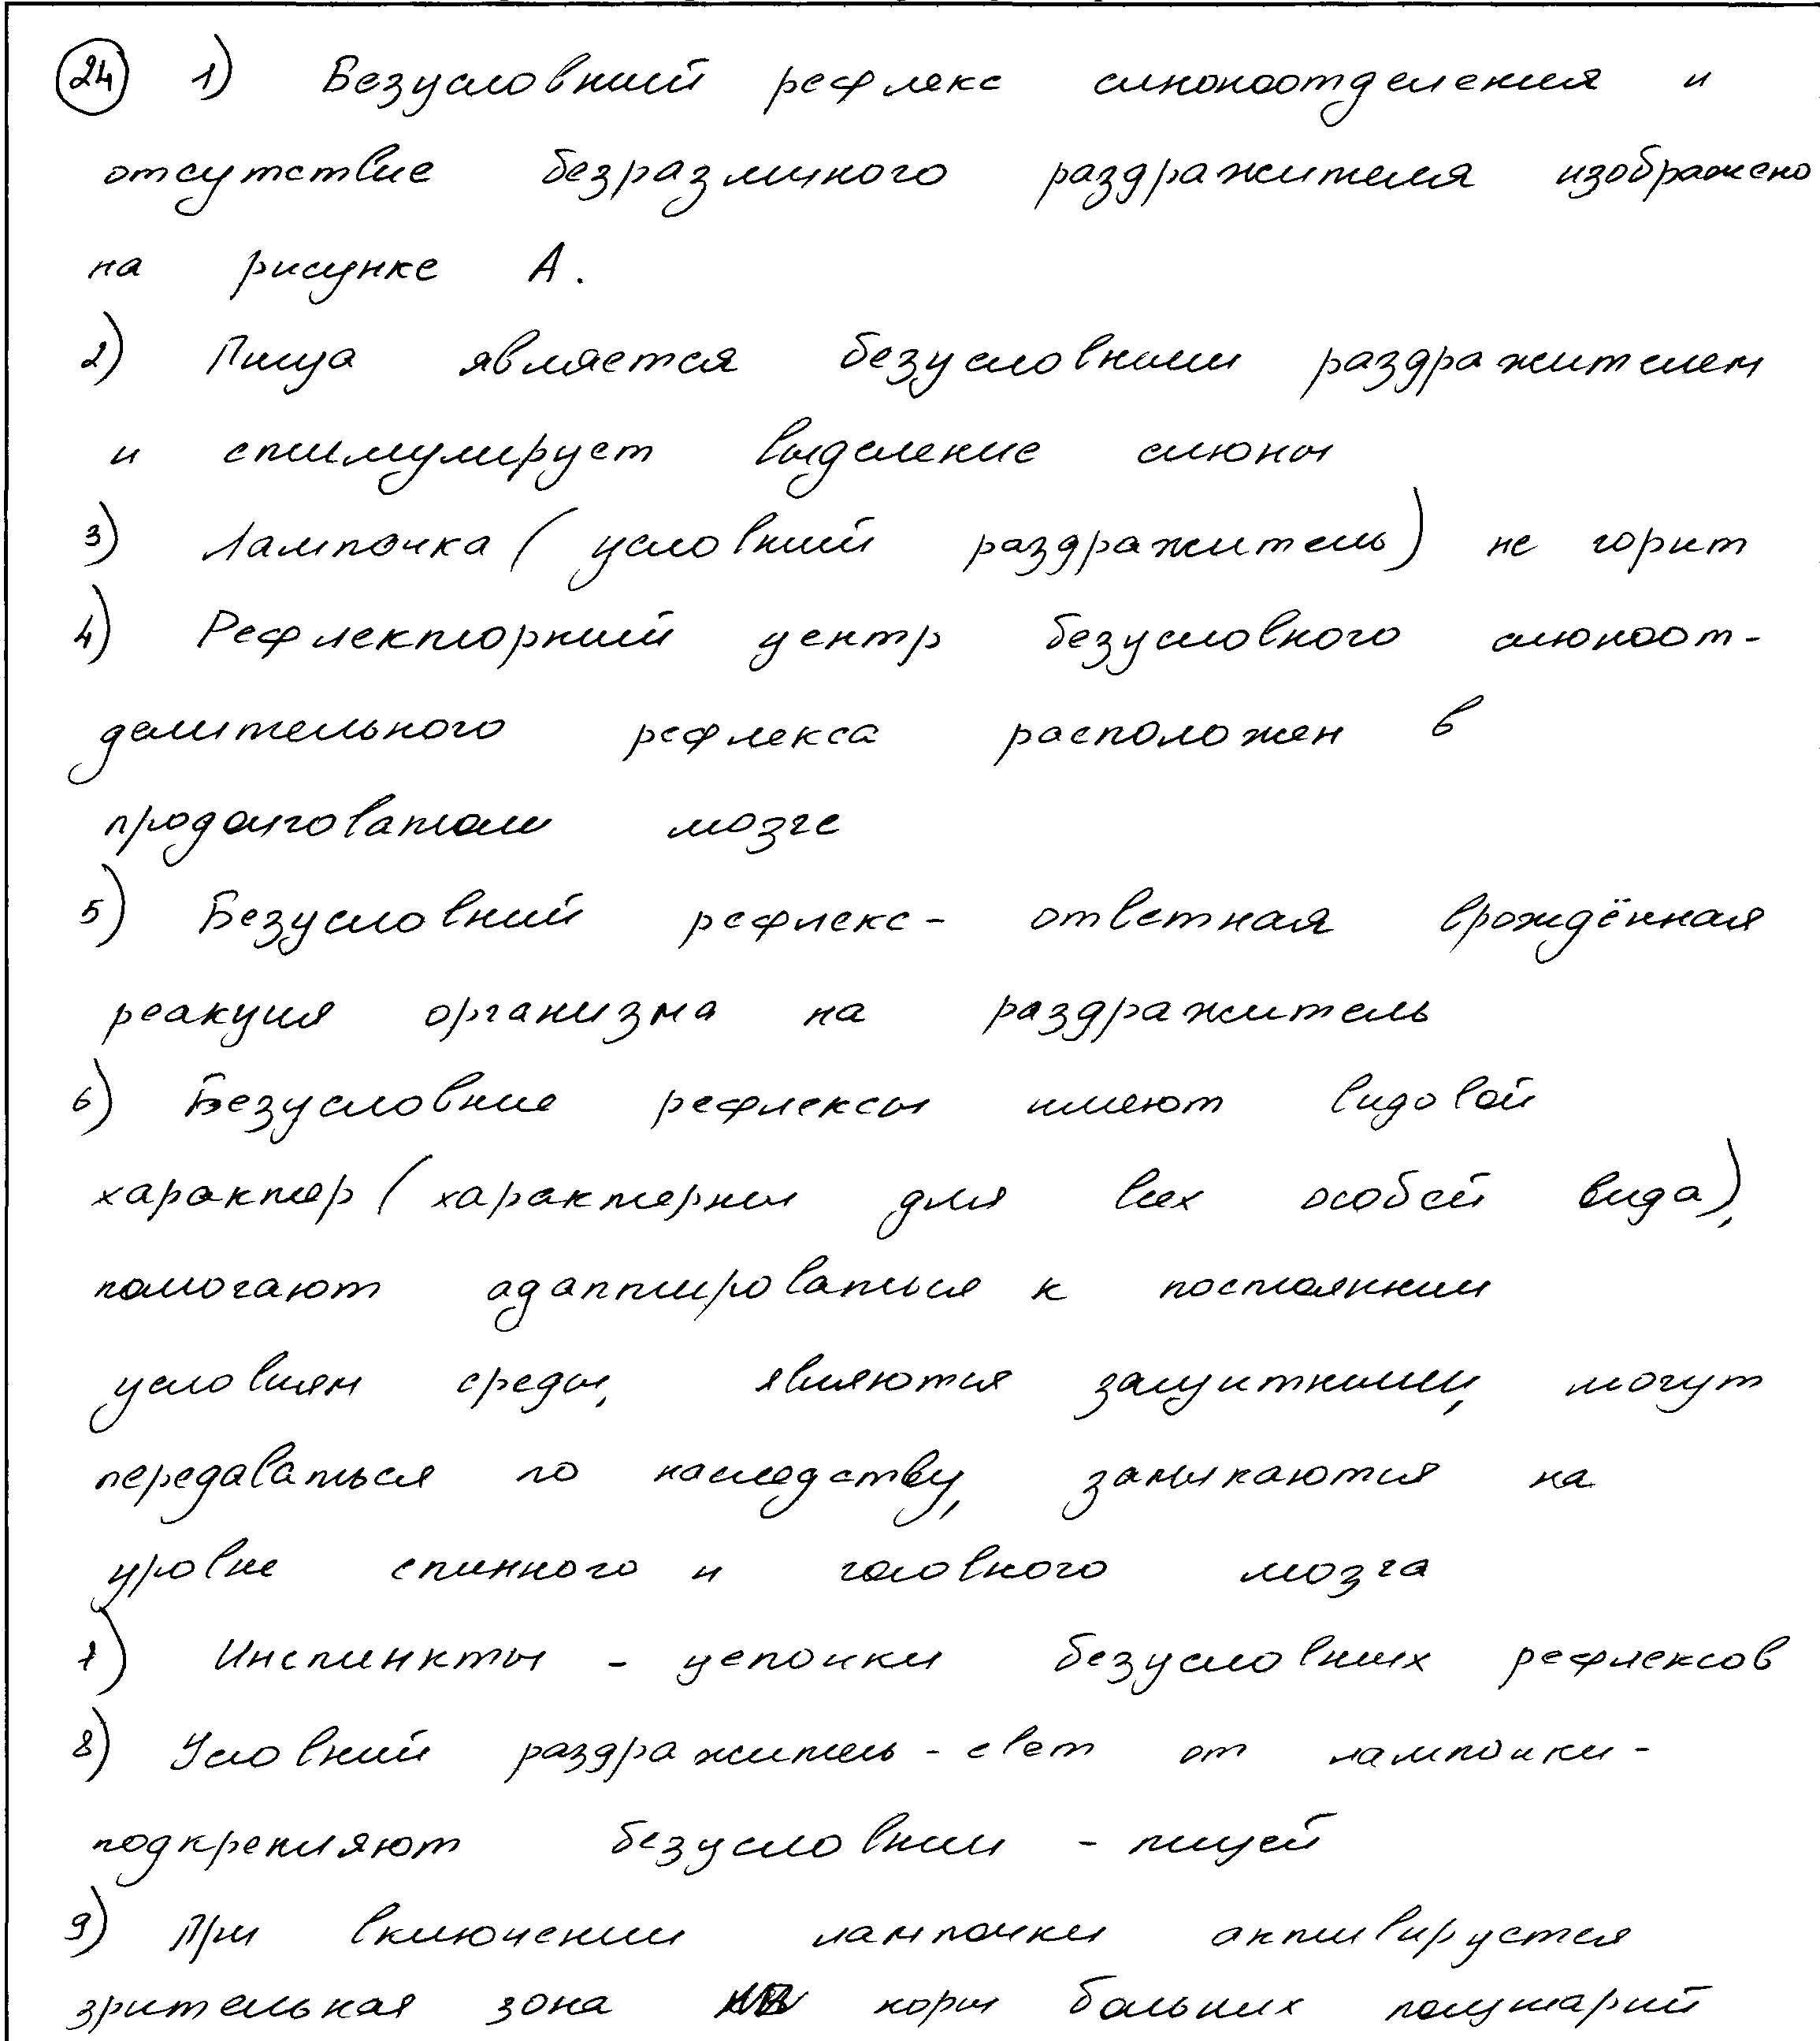 24 1) Безусловный рефлекс слюноотделения и
отсутствие безразличного раздражителя изображено
на рисунке А.
2) Пища является безусловным раздражителем
и стимулирует выделение слюны
3) Лампочка (условный раздражитель) не горит
4) Рефлекторный центр безусловного слюноот-
делительного рефлекса расположен в
продолговатом мозге
5) Безусловный рефлекс - ответная врождённая
реакция организма на раздражитель
6) Безусловные рефлексы имеют видовой
характер (характерны для всех особей вида),
помогают адаптироваться к постоянным
условиям среды, являются защитными, могут
передаваться по наследству, замыкаются на
уровне спинного и головного мозга
7) Инстинкты - цепочки безусловных рефлексов
8) Условный раздражитель - свет от лампочки -
подкрепляют безусловным - пищей
9) При включении лампочки активируется
зрительная зона коры больших полушарий